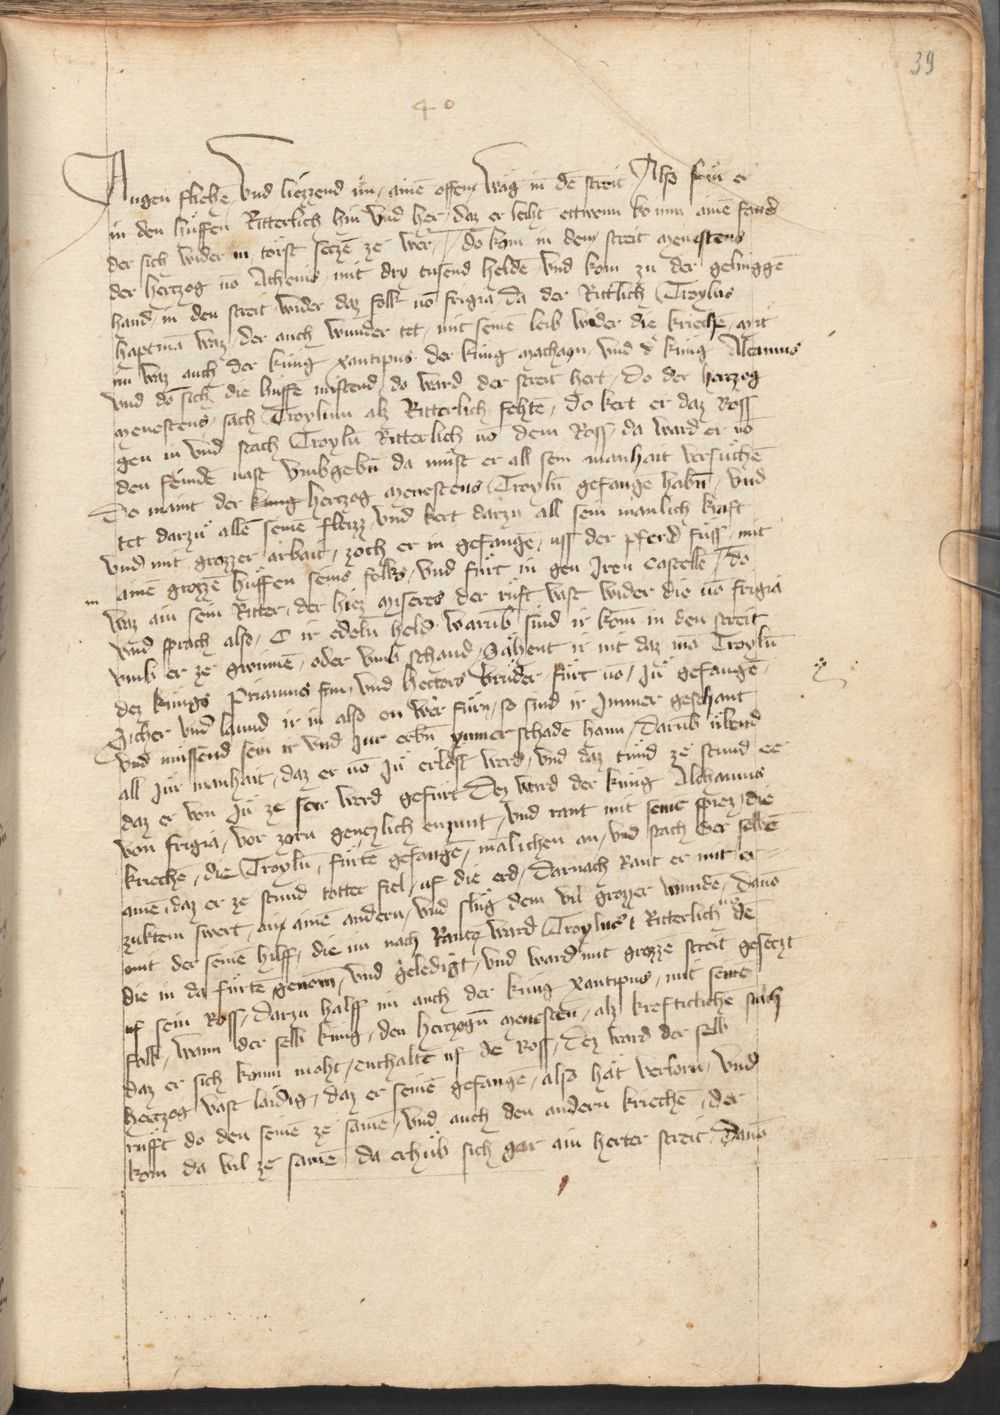 39
40
Augen fliehē vnd liezzend im ainē offem Weg in dē streit Also fur er
in den huffen Ritterlich hin vnd her daz er leiht ettwenn komm ainē fand
der sich wider in torst seczē ze wer / do kom in dem streit menestens
der hertzog vō Athenis mit dry tusend heldē vnd kom zu der gelinggē
hand in den streit wider daz folk vō frigia da der Rittlich Troylus
haptmā waz der auch wunder tet mit seinē leib wider die krieche mit
im waz auch der kung xantipus der kung machaon vnd d kung Alcinus
vnd do sich die huffē mistend do ward der streit hert / do der hertzog
menestens sach Troylum alz Ritterlich fehtē / do kert er daz Ross
gen in vnd stach Troylū Ritterlich vō dem Ross da ward er vō
den feindē vast vmbgebn da must er all sein manhait versuchē
Do maint der kung hertzog menestens Troylū gefange habn / vnd
tet darzu allē seinē fleizz vnd kert darzu all sein manlich kraft
vnd mit grozzer arbait / zoch er in gefange / uss der pferd fuss / mit
ainē grozzē huffen seins folks / vnd furt in gen Iren Castelle / Do
waz ain sein Ritter / der hiez miseres der ruft vast wider die vō frigia
vnd sprach also / O ir edeln held warūb sind ir kom in den streit
vmb er ze gwinnē / oder vmb schand / Sahent ir nit daz mā Troylū
dez kungs Priamus sun / vnd hectors bruder / furt vō / Iu gefangē
Sicher vnd laund ir in also on wer furn / so sind ir Immer geschant
vnd mussend sein ir vnd Iur erbn ymmer schadē hann / Darūb ubend
all Iur manhait / daz er vō Iu erlost werd / vnd daz tund ze stund ee
daz er von Iu ze ferr werd gefurt Dez ward der kung Alchanus
von frigia / vor zorn genczlich enzunt / vnd rant mit seinē sprez / die
krieche / die Troylū / furtē gefangē / manlichen an / vnd stach der selbē
ainē / daz er ze stund totter fiel / uf die erd / Darnach Rant er mit er=
zuktem swert / an ainē andern / vnd slug dem vil grozzer wundē / Davō
mit der seinē hilff / die im nach Rantz ward Troylus t Ritterlich vs de
die in da furtē genom / vnd geledigt / vnd ward mit grozze streit geseczt
uf sein Ross / Darzu halff im auch der kung xantipus / mit seinē
folk / wann der selb kung / den hertzogn menestēn / alz krefticliche stach
daz er sich komm moht / enthaltē uf de Ross / Dez ward der selb
hertzog vast laidig / daz er seinē gefangē / also hat verlorn / vnd
rufft do den seinē ze samē / vnd auch den andern krieche / der
kom da vil ze samē da erhub sich gar ain herter streit / Davō